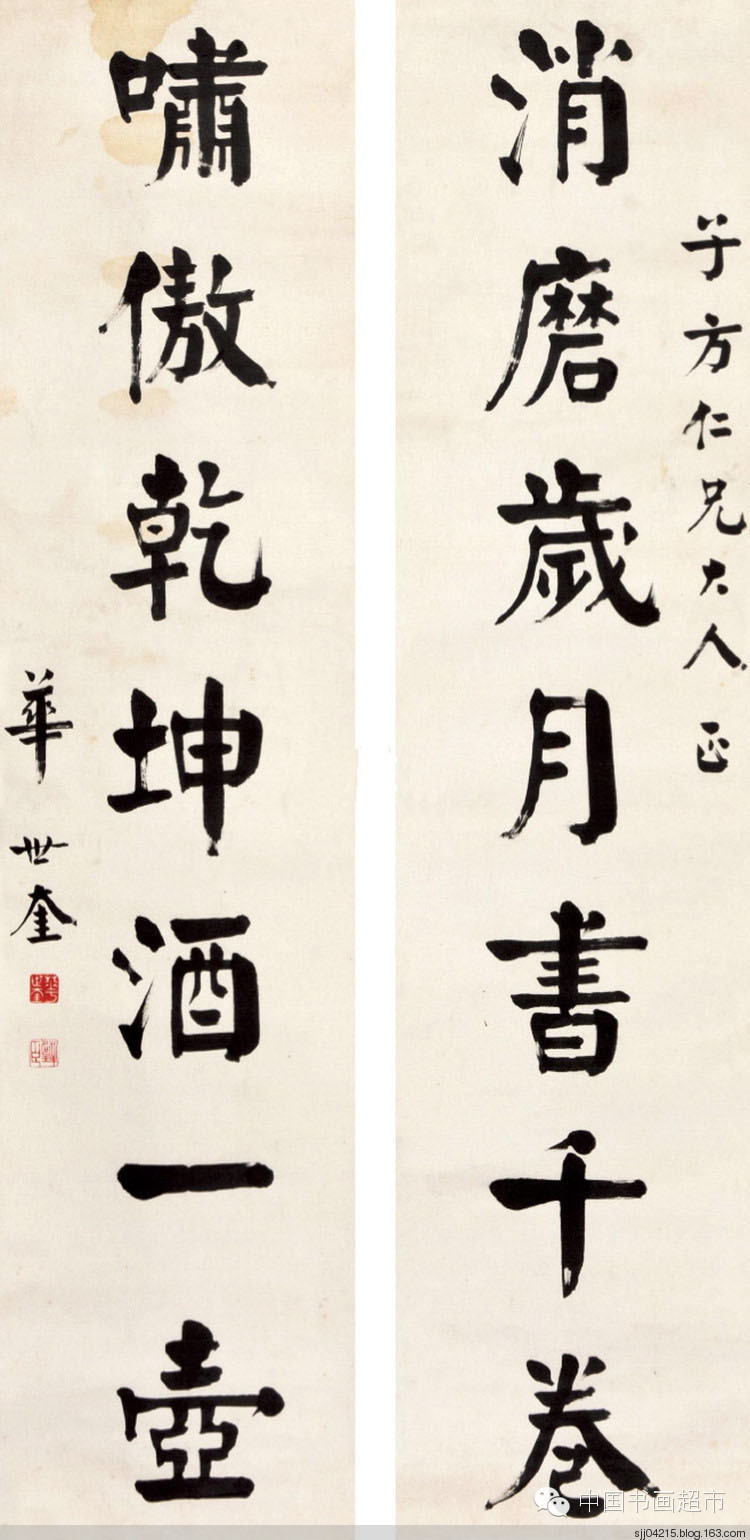 方仁兄大人正
消磨歲月書千卷
嘯傲乾坤酒一壺
華世奎
中国书画超市
sjj04215.blog.163.com